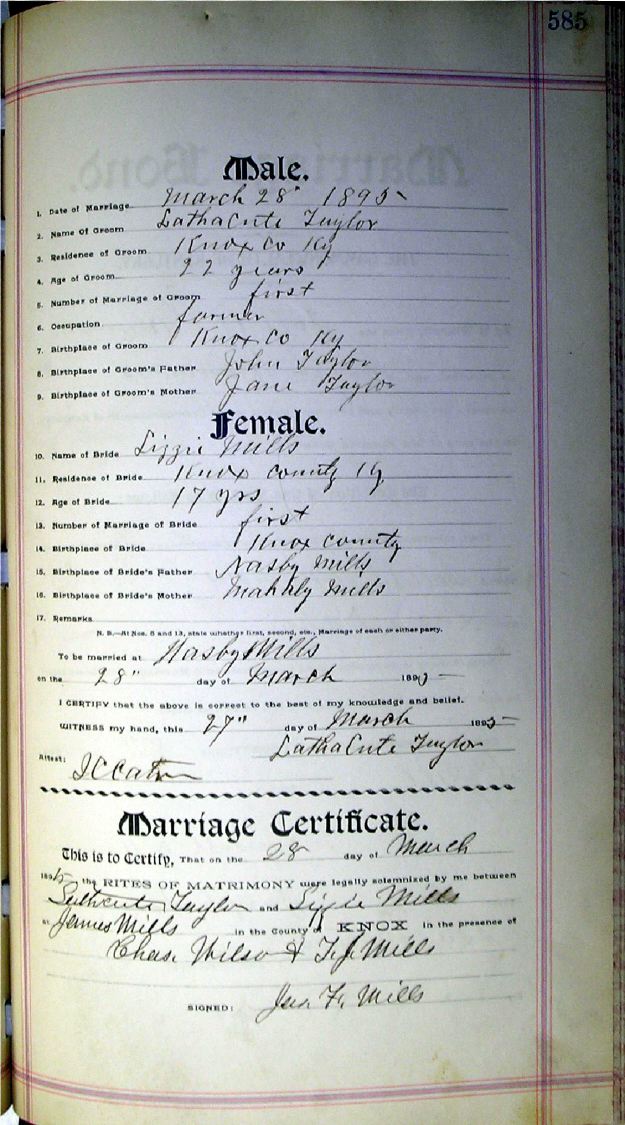 585
Male.
1. Date of Marriage March 28" 1895
2. Name of Groom LathaCute Taylor
3. Residence of Groom Knox Co Ky
4. Age of Groom 22 years
5. Number of Marriage of Groom first
6. Occupation farmer
7. Birthplace of Groom Knox Co Ky
8. Birthplace of Groom's Father John Taylor
9. Birthplace of Groom's Mother Jane Taylor
Female.
10. Name of Bride Lizzie Mills
11. Residence of Bride Knox County Ky
12. Age of Bride 17 yrs
13. Number of Marriage of Bride first
14. Birthplace of Bride Knox County
15. Birthplace of Bride's Father Nasby Mills
16. Birthplace of Bride's Mother Mahaly Mills
17. Remarks
N. B.—At Nos. 5 and 13, state whether first, second, etc., Marriage of each or either party.
To be married at Nasby Mills
on the 28" day of March 1895
I CERTIFY that the above is correct to the best of my knowledge and belief.
WITNESS my hand, this 27" day of March 1895
LathaCute Taylor
Attest:
Marriage Certificate.
This is to Certify, That on the 28 day of March
1895 the RITES OF MATRIMONY were legally solemnized by me between
Taylor and Lizzie Mills
at James Mills in the County of KNOX in the presence of
Chas. Wilso & Mills
SIGNED: Mills